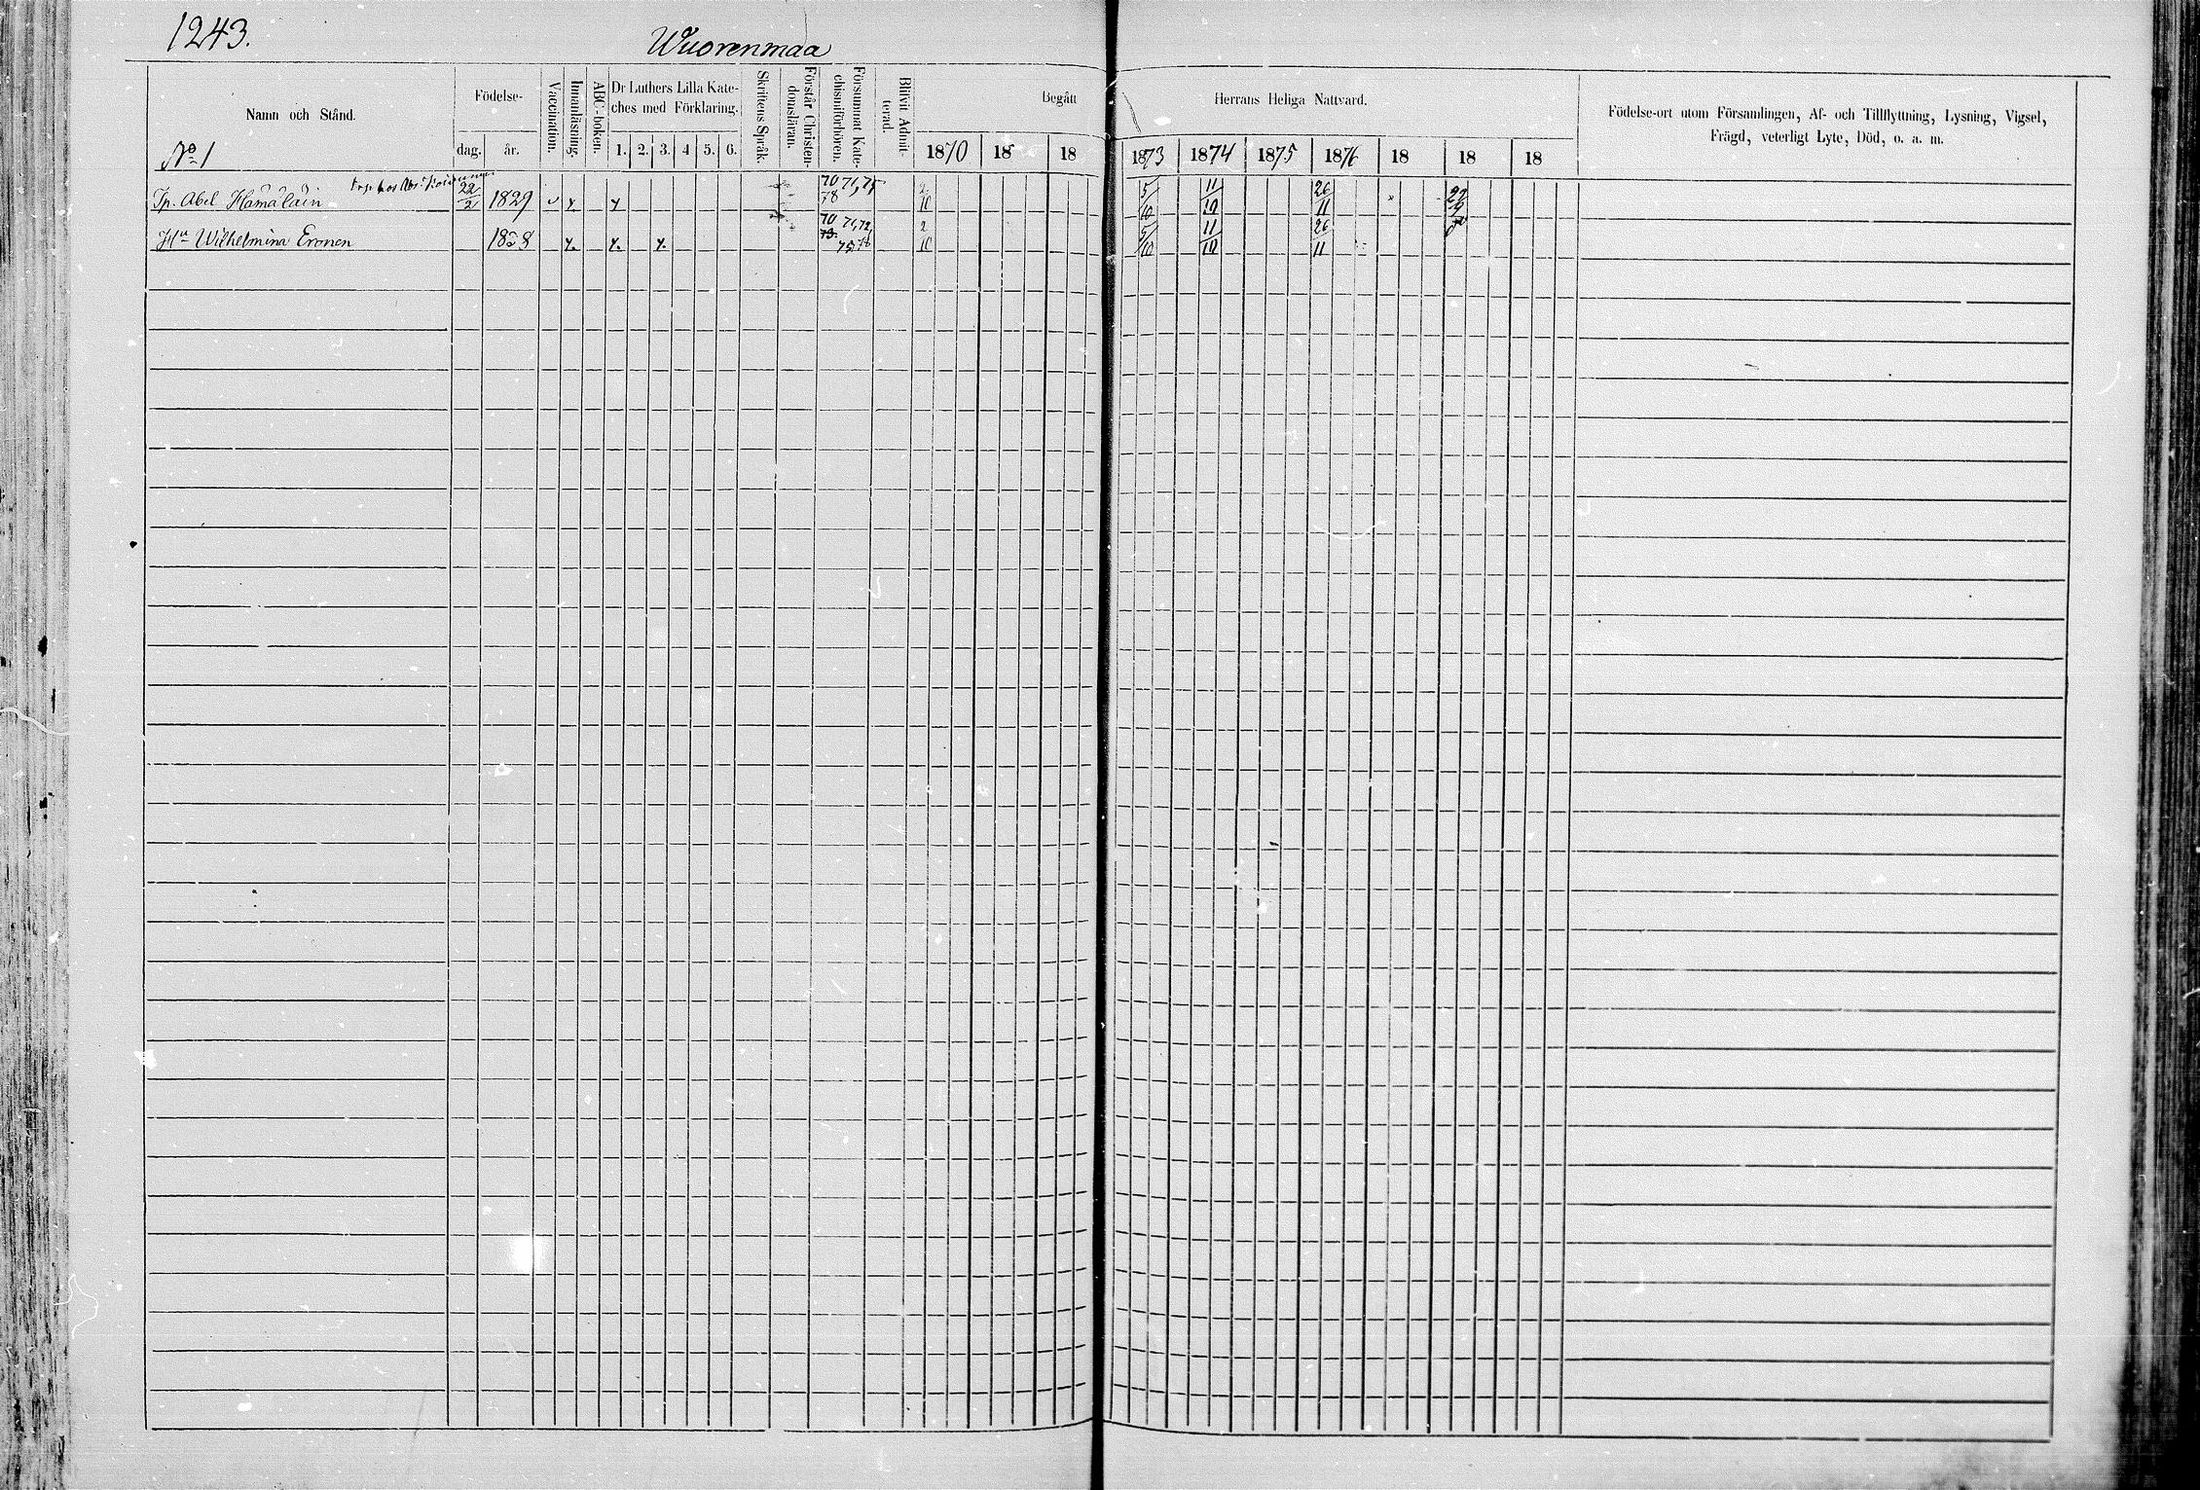 1243.
Wuorenmaa
Namn och Stånd.
Födelse-
dag.
år.
Vaccination.
Innanläsning.
ABC-boken.
Dr Luthers Lilla Kate-
ches med Förklaring.
1. 2. 3. 4 5. 6.
Skriftens Språk.
Förstår Christen-
domsläran.
Försummat Kate-
chismiförhören.
Blifvit Admit-
terad.
Begått
Herrans Heliga Nattvard.
1870 18 18 1873 1874 1875 1876 18 18 18
Födelse-ort utom Församlingen, Af- och Tillflyttning, Lysning, Vigsel,
Frägd, veterligt Lyte, Död, o. a. m.
No 1
Abel Hämäläin 22/2 1829 70 71, 75 78 2/10 5/10 11/10 26/11
Hu Wilhelmina Eronen 1828 70 71, 72, 73. 75. 2/10 5/10 11/10 26/11